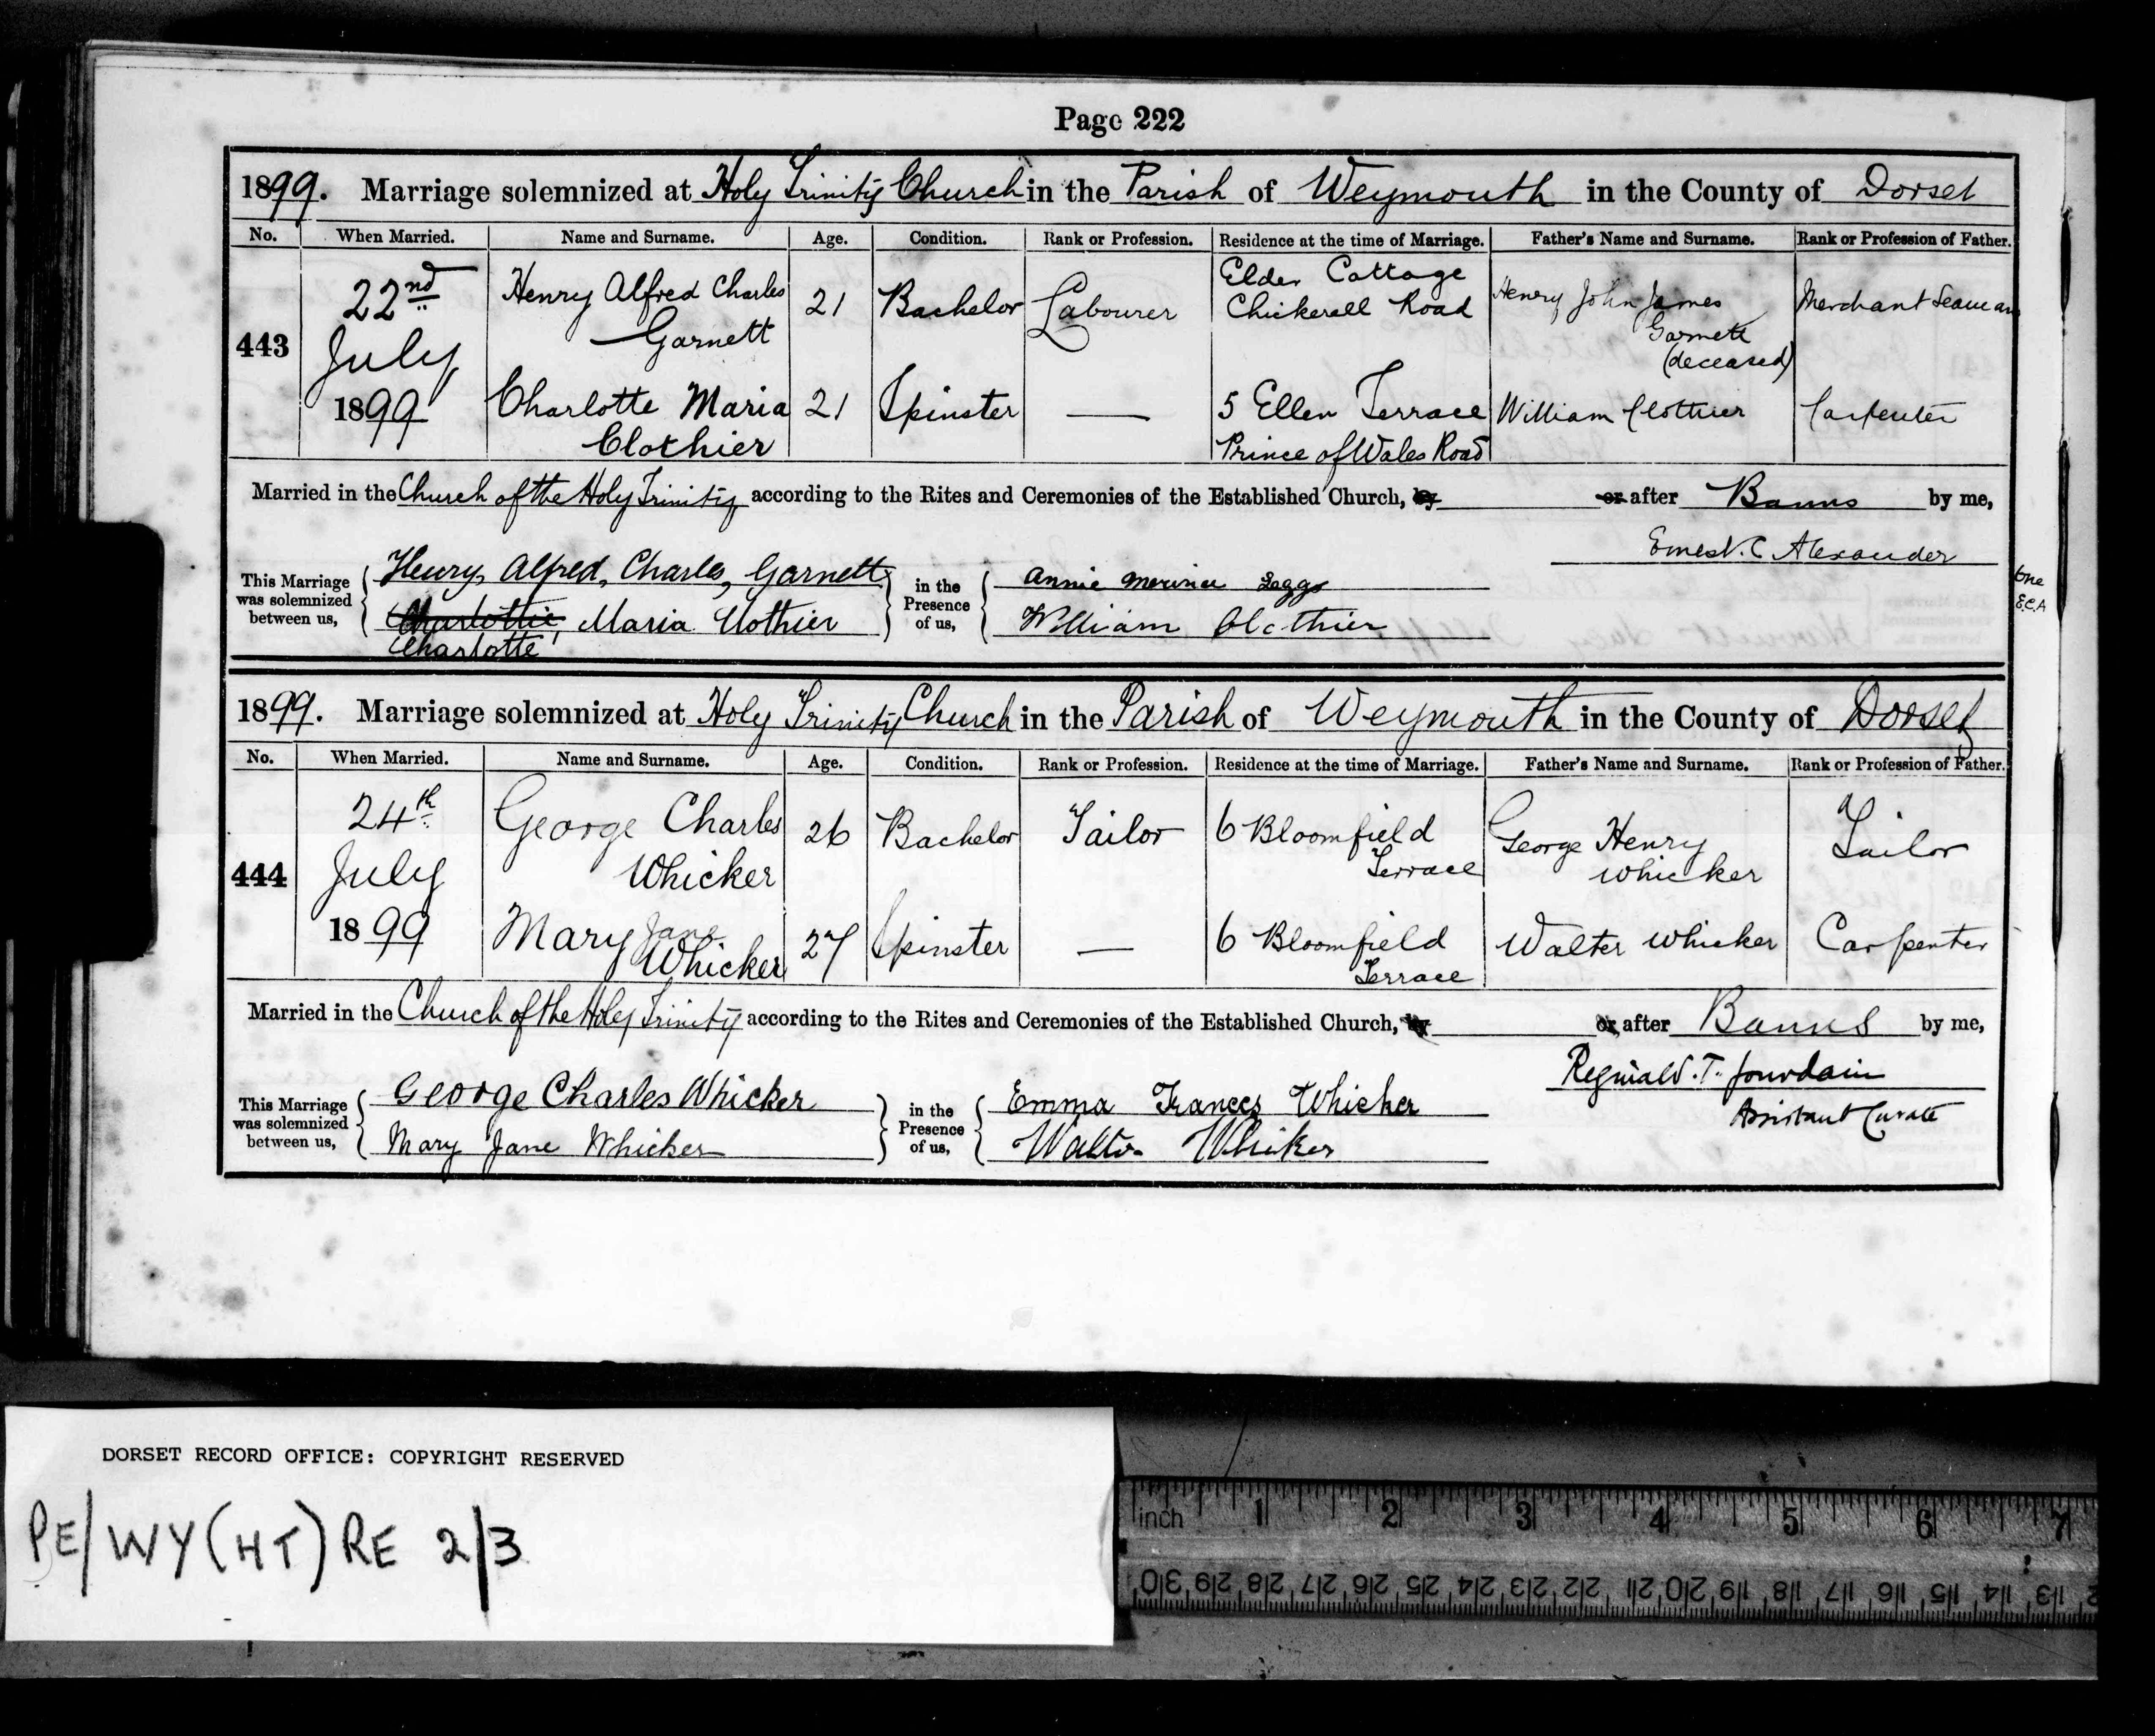 Page 222
1899. Marriage solemnized at Holy Trinity Church in the Parish of Weymouth in the County of Dorset
No. When Married. Name and Surname. Age. Condition. Rank or Profession. Residence at the time of Marriage. Father's Name and Surname. Rank or Profession of Father.
443 22nd July 1899
Henry Alfred Charles Garnett 21 Bachelor Labourer Elder Cottage Chickerell Road Henry John James Garnett (deceased) Merchant Seaman
Charlotte Maria Clothier 21 Spinster — 5 Ellen Terrace Prince of Wales Road William Clothier Carpenter
Married in the Church of the Holy Trinity according to the Rites and Ceremonies of the Established Church, by or after Banns by me,
Ernest. C Alexander
This Marriage was solemnized between us,
Henry, Alfred, Charles, Garnett
Charlottie, Maria Clothier
Charlotte
in the Presence of us,
Annie Leggs
William Clothier
One
E.C.A
1899. Marriage solemnized at Holy Trinity Church in the Parish of Weymouth in the County of Dorset
No. When Married. Name and Surname. Age. Condition. Rank or Profession. Residence at the time of Marriage. Father's Name and Surname. Rank or Profession of Father.
444 24th July 1899
George Charles Whicker 26 Bachelor Tailor 6 Bloomfield Terrace George Henry Whicker Tailor
Mary Jane Whicker 27 Spinster — 6 Bloomfield Terrace Walter Whicker Carpenter
Married in the Church of the Holy Trinity according to the Rites and Ceremonies of the Established Church, by or after Banns by me,
Reginald. T. Jourdain
Assistant Curate
This Marriage was solemnized between us,
George Charles Whicker
Mary Jane Whicker
in the Presence of us,
Emma Frances Whicker
Walter Whiker
DORSET RECORD OFFICE: COPYRIGHT RESERVED
PE/WY(HT) RE 2/3
inch 1 2 3 4 5 6 7
30 29 28 27 26 25 24 23 22 21 20 19 18 17 16 15 14 13